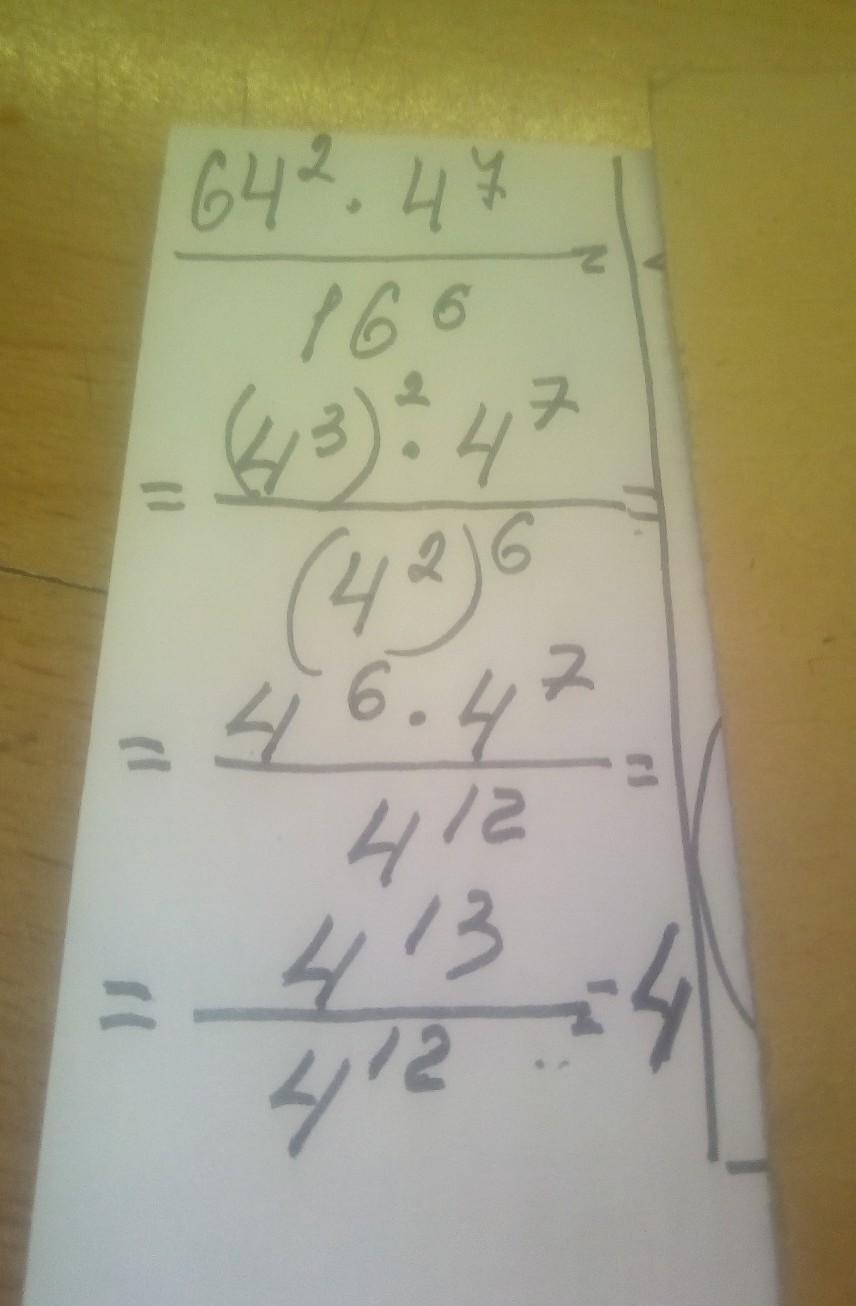 64² · 4⁷
16⁶ =
= (4³)² · 4⁷
(4²)⁶ =
= 4⁶ · 4⁷
4¹² =
= 4¹³
4¹² = 4